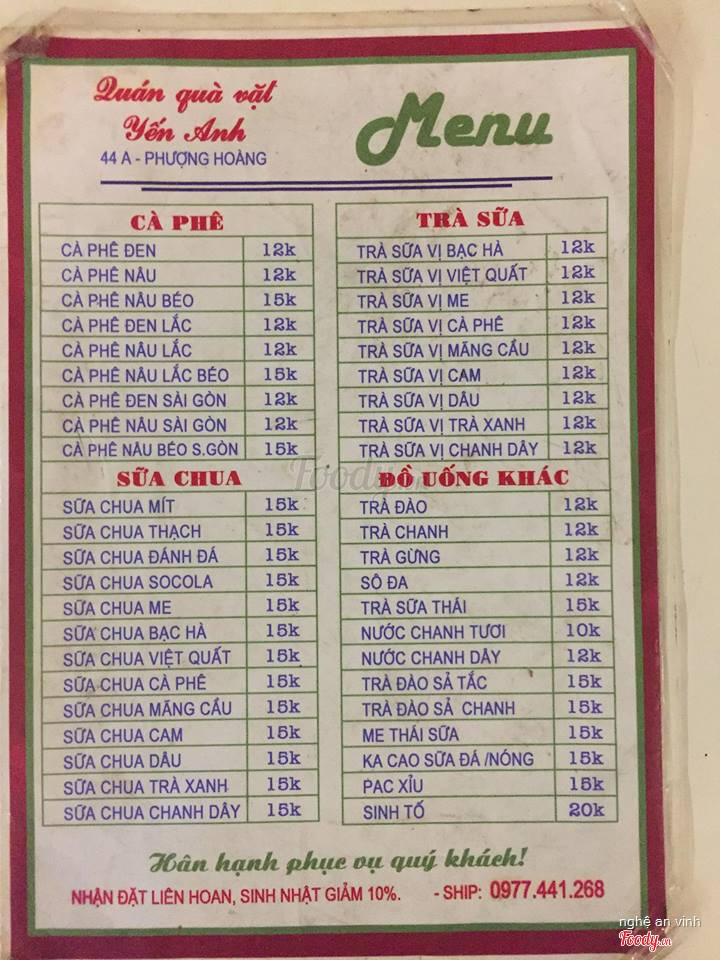 Quán quà vặt
Yến Anh
44 A - PHƯỢNG HOÀNG
Menu
CÀ PHÊ
CÀ PHÊ ĐEN 12k
CÀ PHÊ NÂU 12k
CÀ PHÊ NÂU BÉO 15k
CÀ PHÊ ĐEN LẮC 12k
CÀ PHÊ NÂU LẮC 12k
CÀ PHÊ NÂU LẮC BÉO 15k
CÀ PHÊ ĐEN SÀI GÒN 12k
CÀ PHÊ NÂU SÀI GÒN 12k
CÀ PHÊ NÂU BÉO S.GÒN 15k
SỮA CHUA
SỮA CHUA MÍT 15k
SỮA CHUA THẠCH 15k
SỮA CHUA ĐÁNH ĐÁ 15k
SỮA CHUA SOCOLA 15k
SỮA CHUA ME 15k
SỮA CHUA BẠC HÀ 15k
SỮA CHUA VIỆT QUẤT 15k
SỮA CHUA CÀ PHÊ 15k
SỮA CHUA MÃNG CẦU 15k
SỮA CHUA CAM 15k
SỮA CHUA DÂU 15k
SỮA CHUA TRÀ XANH 15k
SỮA CHUA CHANH DÂY 15k
TRÀ SỮA
TRÀ SỮA VỊ BẠC HÀ 12k
TRÀ SỮA VỊ VIỆT QUẤT 12k
TRÀ SỮA VỊ ME 12k
TRÀ SỮA VỊ CÀ PHÊ 12k
TRÀ SỮA VỊ MÃNG CẦU 12k
TRÀ SỮA VỊ CAM 12k
TRÀ SỮA VỊ DÂU 12k
TRÀ SỮA VỊ TRÀ XANH 12k
TRÀ SỮA VỊ CHANH DÂY 12k
ĐỒ UỐNG KHÁC
TRÀ ĐÀO 12k
TRÀ CHANH 12k
TRÀ GỪNG 12k
SÔ ĐA 12k
TRÀ SỮA THÁI 15k
NƯỚC CHANH TƯƠI 10k
NƯỚC CHANH DÂY 12k
TRÀ ĐÀO SẢ TẮC 15k
TRÀ ĐÀO SẢ CHANH 15k
ME THÁI SỮA 15k
KA CAO SỮA ĐÁ /NÓNG 15k
PAC XỈU 15k
SINH TỐ 20k
Foody.vn
Hân hạnh phục vụ quý khách!
NHẬN ĐẶT LIÊN HOAN, SINH NHẬT GIẢM 10%. - SHIP: 0977.441.268
nghệ an vinh
Foody.vn